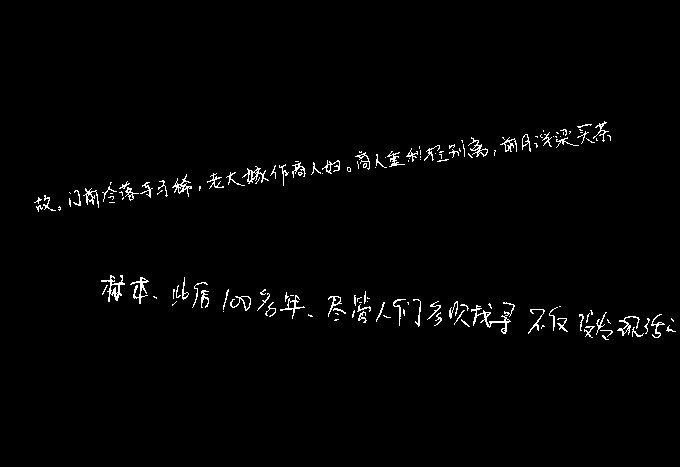 故。门前冷落车马稀，老大嫁作商人妇。商人重利轻别离，前月浮梁买茶
标本、此后100多年、尽管人们多次找寻 不仅没发现活